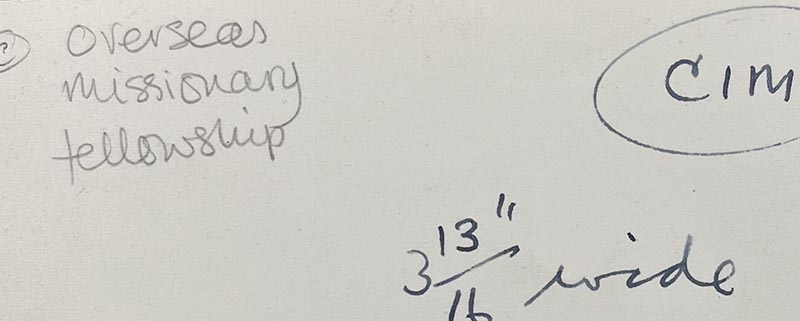 overseas
missionary
fellowship
CIM
3 13/16" wide